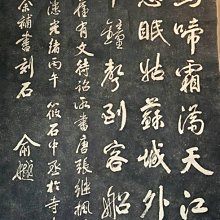 烏啼霜滿天江
愁眠姑蘇城外
鐘聲到客船
舊有文待詔所書唐張繼楓
漶光緒丙午筱石中丞於寺
余補書刻石 俞樾